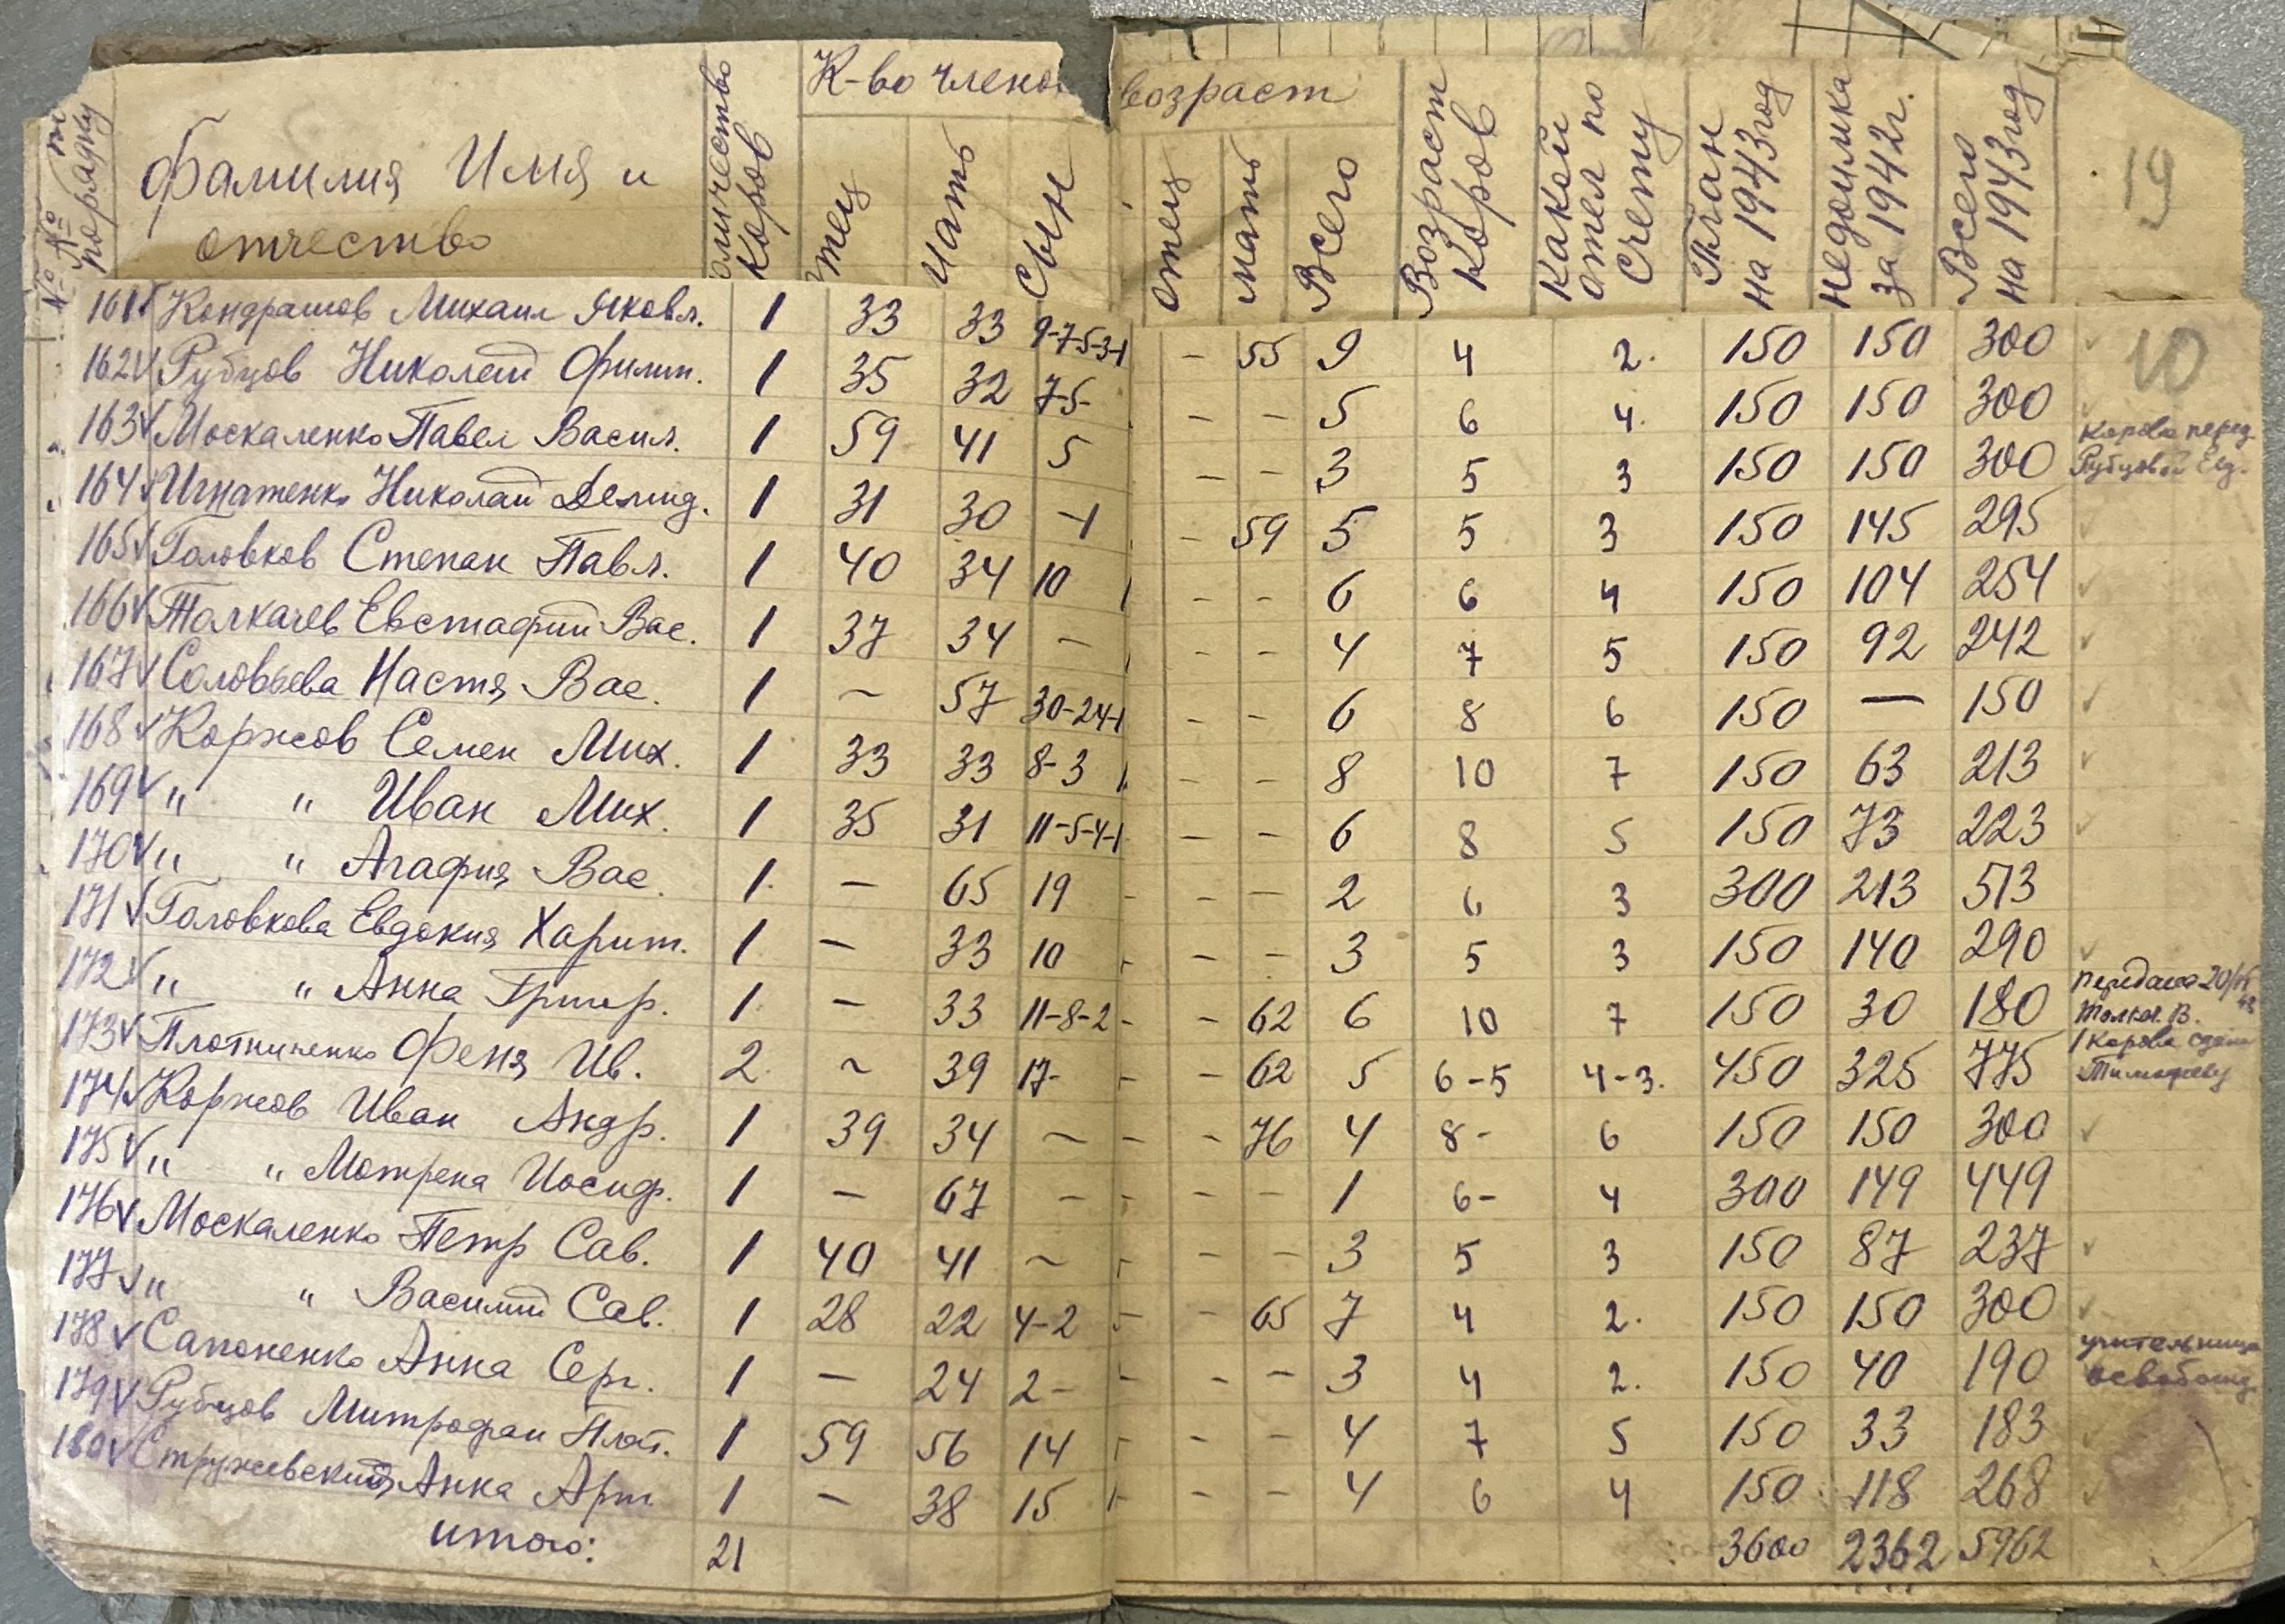 № №№ по порядку
Фамилия Имя и отчество
Количество Коров
К-во членов
возраст
Отец
Мать
Сын
отец
мать
Всего
Возраст Коров
Какой отел по Счету
План на 1943 год
недоимка за 1942 г.
Всего на 1943 год
19
161 Кондрашов Михаил Яковл. 1 33 33 9-7-5-3-1 - 55 9 4 2. 150 150 300 ✓ 10
162 ✓ Рубцов Николай Филип. 1 35 32 7-5- - - 5 6 4. 150 150 300 ✓
163 ✓ Москаленко Павел Васил. 1 59 41 5 - - 3 5 3 150 150 300 Корова перед. Рубцовой Евд.
164 ✓ Игнатенко Николай Демид. 1 31 30 -1 - 59 5 5 3 150 145 295 ✓
165 ✓ Головков Степан Павл. 1 40 34 10 - - 6 6 4 150 104 254 ✓
166 ✓ Толкачев Евстафий Вас. 1 37 34 - - - 4 7 5 150 92 242 ✓
167 ✓ Соловьева Настя Вас. 1 ~ 57 30-24-1 - - 6 8 6 150 — 150 ✓
168 ✓ Коржов Семен Мих. 1 33 33 8-3 - - 8 10 7 150 63 213 ✓
169 ✓ " " Иван Мих. 1 35 31 11-5-4-1 - - 6 8 5 150 73 223 ✓
170 ✓ " " Агафия Вас. 1. - 65 19 - - - 2 6 3 300 213 513
171 ✓ Головкова Евдокия Харит. 1 - 33 10 - - - 3 5 3 150 140 290 ✓
172 ✓ " " Анна Григор. 1. - 33 11-8-2 - - 62 6 10 7 150 30 180 передана 20/ Толкач. В.
173 ✓ Плотниченко Феня Ив. 2. ~ 39 17- - - 62 5 6-5 4-3. 450 325 775 1 Корова сдан Тимофееву
174 ✓ Коржов Иван Андр. 1 39 34 ~ - - 76 4 8- 6 150 150 300 ✓
175 ✓ " " Мотрена Иосиф. 1 - 67 - - - - 1 6- 4 300 149 449
176 ✓ Москаленко Петр Сав. 1 40 41 ~ - - - 3 5 3 150 87 237 ✓
177 ✓ " " Василий Сав. 1 28 22 4-2 - - 65 7 4 2. 150 150 300 ✓
178 ✓ Сапоненко Анна Серг. 1 - 24 2- - - - 3 4 2. 150 40 190 учительница освобожд.
179 ✓ Рубцов Митрофан Плат. 1 59 56 14 - - - 4 7 5 150 33 183 ✓
180 ✓ Стружевский Анна Арт 1 - 38 15 - - - 4 6 4 150 118 268 ✓
итого: 21 3600 2362 5962